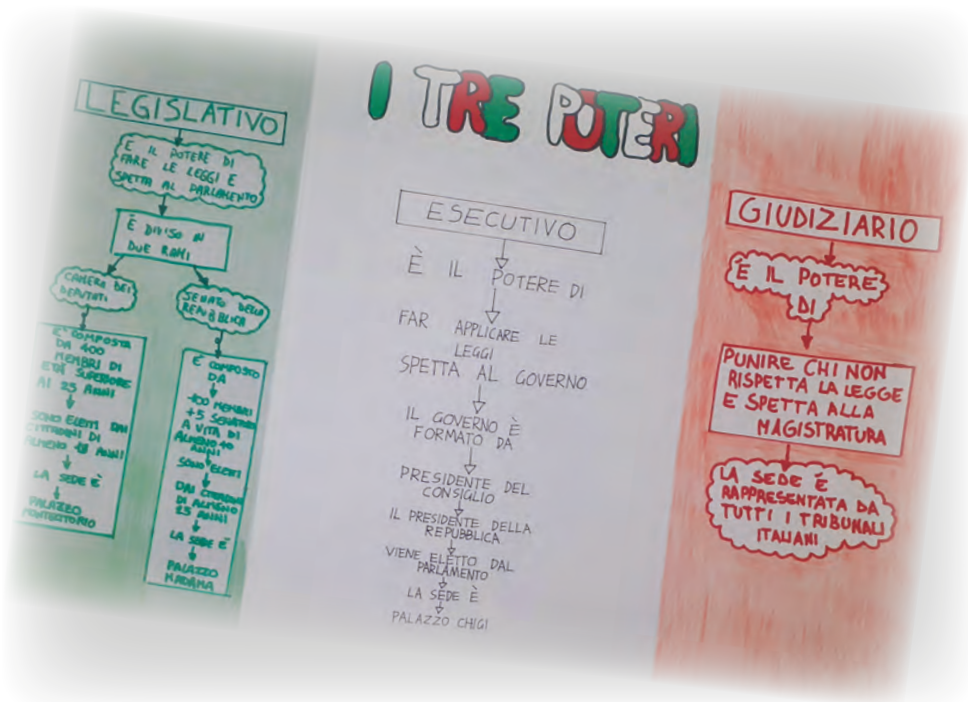 I TRE POTERI
LEGISLATIVO
È IL POTERE DI
FARE LE LEGGI E
SPETTA AL PARLAMENTO
È DIVISO IN
DUE RAMI
CAMERA DEI
DEPUTATI
È COMPOSTA
DA 400
MEMBRI DI
ETÀ SUPERIORE
AI 25 ANNI
SONO ELETTI DAI
CITTADINI DI
ALMENO 18 ANNI
LA SEDE È
PALAZZO
MONTECITORIO
SENATO DELLA
REPUBBLICA
È COMPOSTO
DA
MEMBRI
+5 SENATORI
A VITA DI
ALMENO 40
ANNI
SONO ELETTI
DAI CITTADINI
DI ALMENO
25 ANNI
LA SEDE È
PALAZZO
MADAMA
ESECUTIVO
È IL POTERE DI
FAR APPLICARE LE
LEGGI
SPETTA AL GOVERNO
IL GOVERNO È
FORMATO DA
PRESIDENTE DEL
CONSIGLIO
IL PRESIDENTE DELLA
REPUBBLICA
VIENE ELETTO DAL
PARLAMENTO
LA SEDE È
PALAZZO CHIGI
GIUDIZIARIO
È IL POTERE
DI
PUNIRE CHI NON
RISPETTA LA LEGGE
E SPETTA ALLA
MAGISTRATURA
LA SEDE È
RAPPRESENTATA DA
TUTTI I TRIBUNALI
ITALIANI